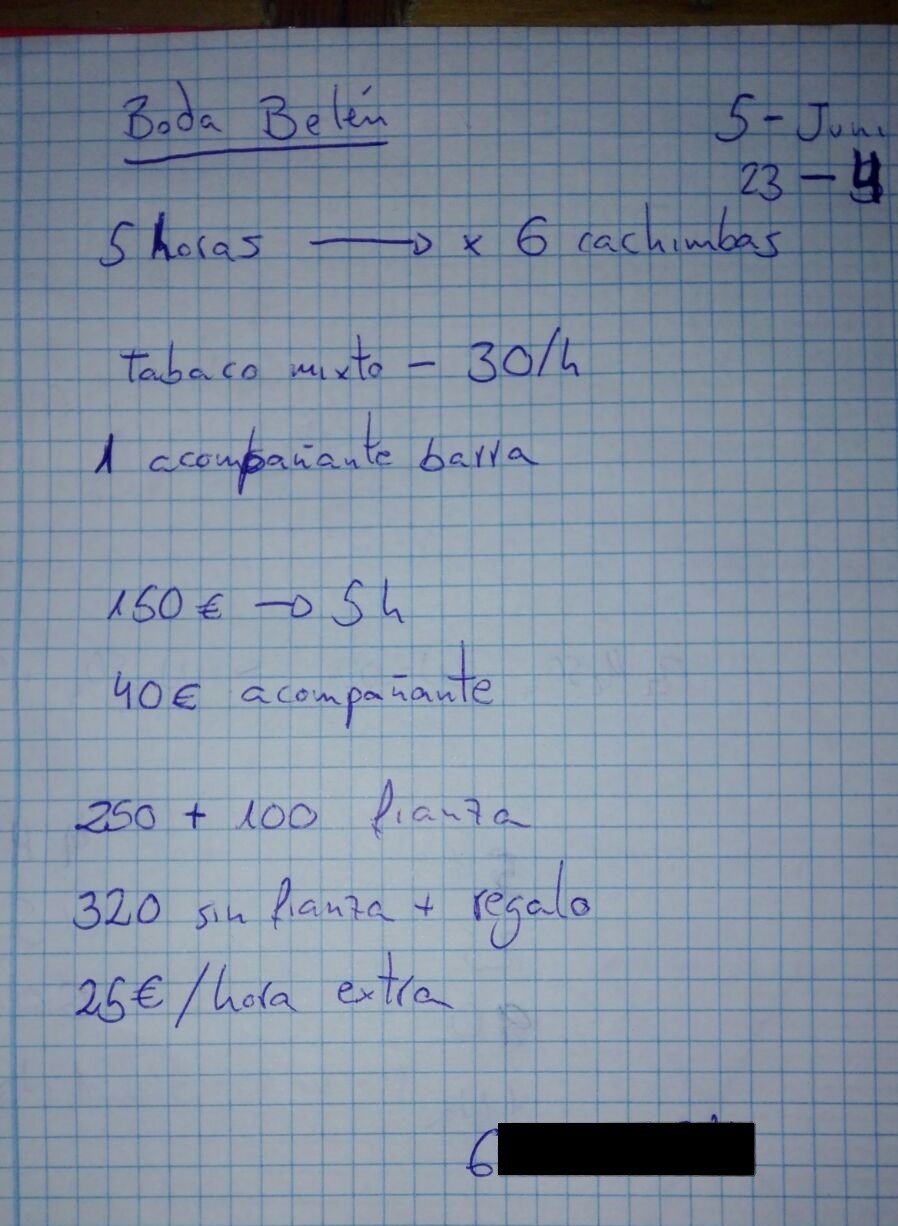 Boda Belén
5 - Juni
23 - 4
5 horas → x 6 cachimbas
tabaco mixto - 30/h
1 acompañante barra
150 € → 5 h
40 € acompañante
250 + 100 fianza
320 sin fianza + regalo
25€ /hora extra
6